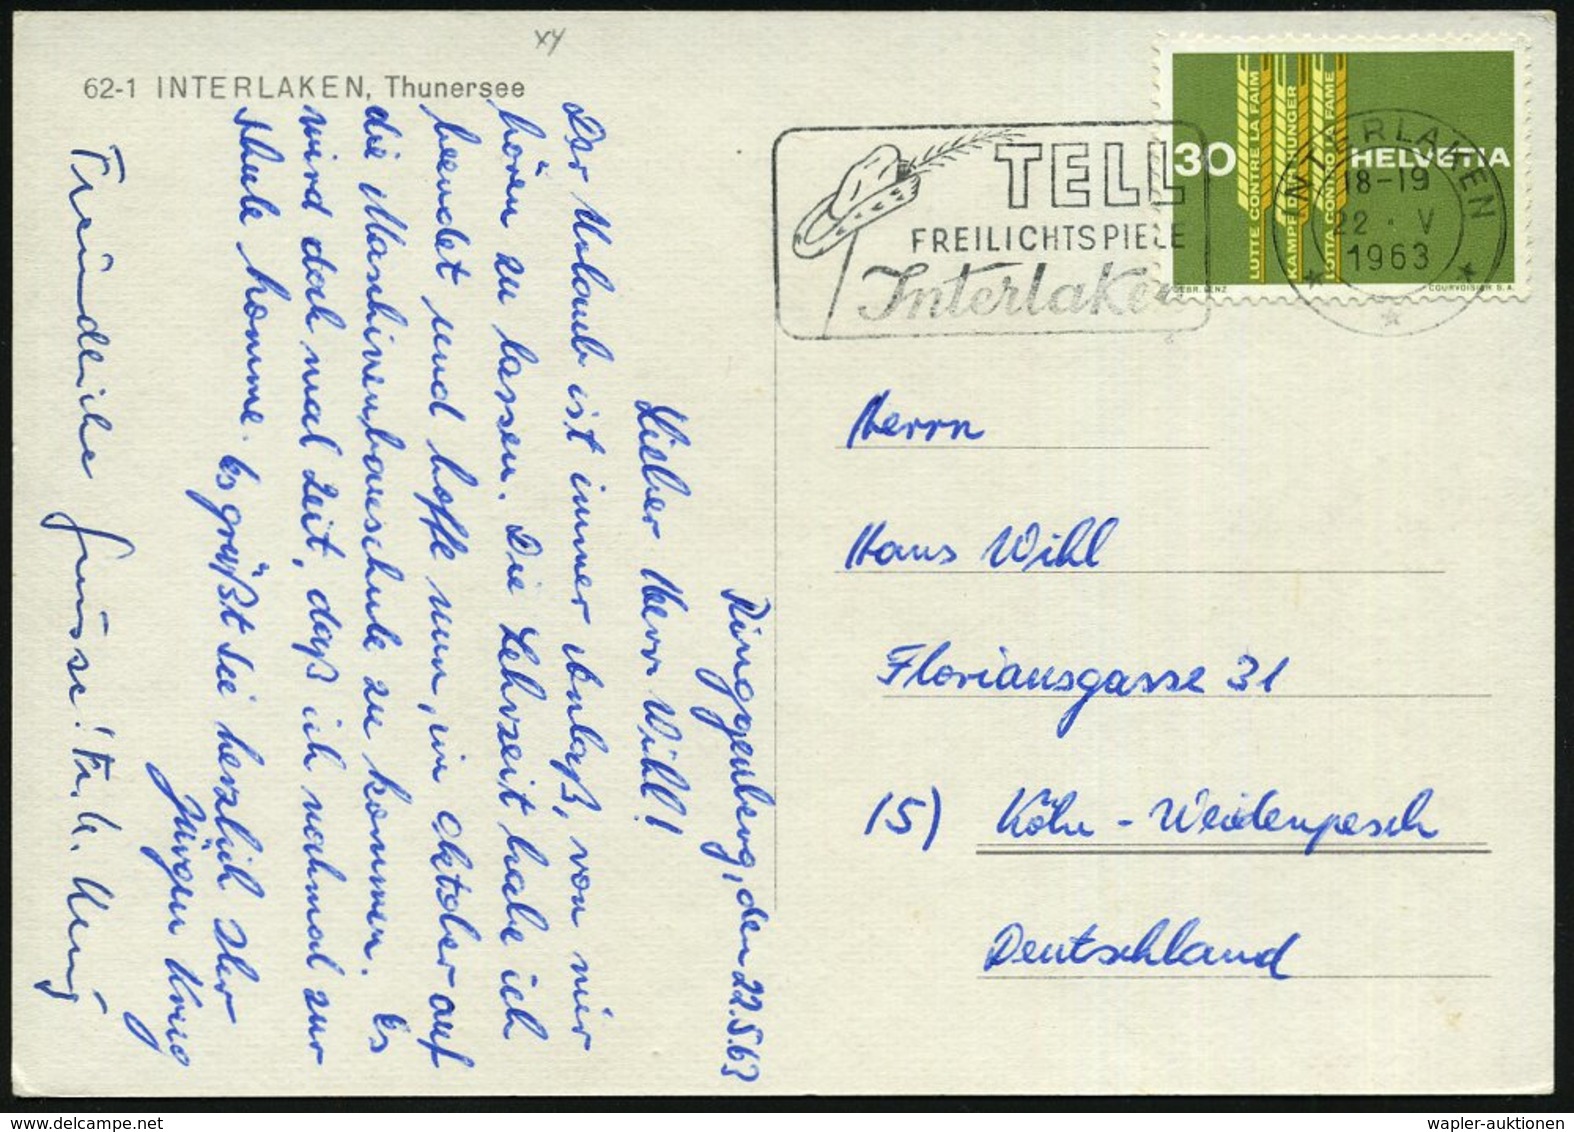 xy
62-1 INTERLAKEN, Thunersee
Ringgenberg, den 22.5.63
Lieber Herr Wihl!
Der Urlaub ist immer Anlaß, von mir
hören zu lassen. Die Lehrzeit habe ich
beendet und hoffe nun, im Oktober auf
die Maschinenbauschule zu kommen. Es
wird doch mal Zeit, daß ich nochmal zur
Schule komme. Es grüßt Sie herzlich Ihr
Jürgen
Freundliche Grüsse!
TELL
FREILICHTSPIELE
Interlaken
30
HELVETIA
LUTTE CONTRE LA FAIM
KAMPF DEM HUNGER
LOTTA CONTRO LA FAME
GEBR. BENZ
COURVOISIER S.A.
INTERLAKEN
18-19
22 · V
1963
Herrn
Hans Wihl
Floriansgasse 31
(5) Köln - Weidenpesch
Deutschland
wapler-auktionen